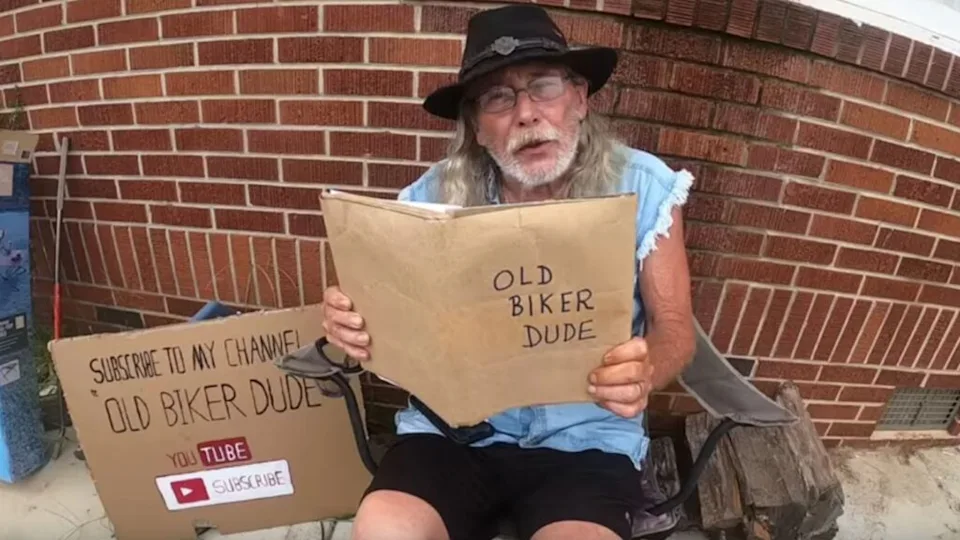 OLD
BIKER
DUDE
SUBSCRIBE TO MY CHANNEL
"OLD BIKER DUDE
YOU TUBE
SUBSCRIBE